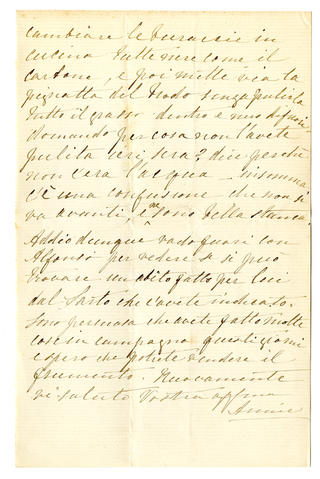 cambiare le buraccie in
cucina tutte nere come il
carbone, e poi mette via la
pignatta del brodo senza pulirla
tutto il grasso dentro e nero di fuori
domando per cosa non l'avete
pulita ieri sera? dice perchè
non c'era l'acqua insomma
c'è una confusione che non si
va avanti, e ne sono bella stanca.
Addio dunque vado fuori con
Alfonso per vedere se si può
trovare un abito fatto per lui
dal Sarto che avete indicato.
Sono persuasa che avete fatto molte
cose in campagna questi giorni
e spero che potrete vendere il
frumento. Nuovamente
vi saluto Vostra affma
Annie